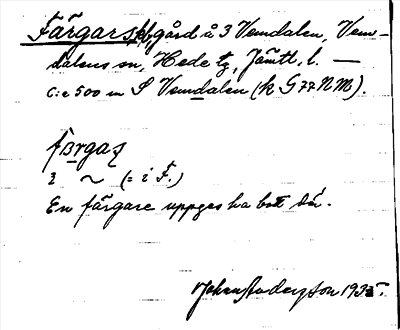 Färgars, gård å 3 Vemdalen, Vem-
dalens sn, Hede tg, Jämtl. l. —
c:a 500 m S Vemdalen (k G 77 NM).
färgaʂ
i ~ (= i F.)
En färgare uppges ha bott där.
Johan Anderson 1935.